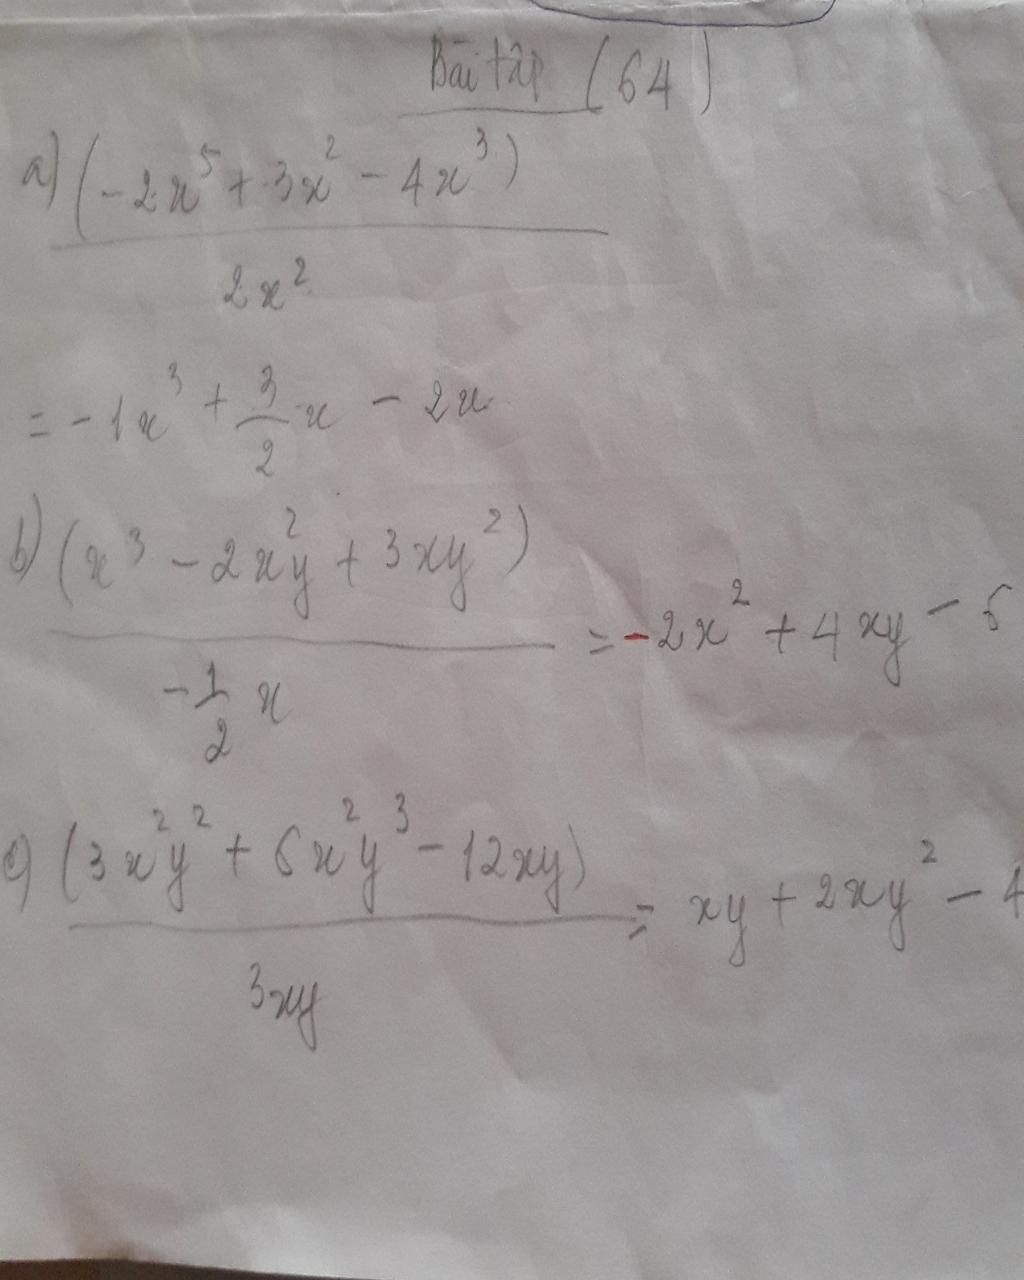 Bài tập (64)
a) (-2x⁵ + 3x² - 4x³)
2x²
= -1x³ + 3/2 x - 2x
b) (x³ - 2x²y + 3xy²) / (-1/2 x) = -2x² + 4xy - 6
c) (3x²y² + 6x²y³ - 12xy) / 3xy = xy + 2xy² - 4